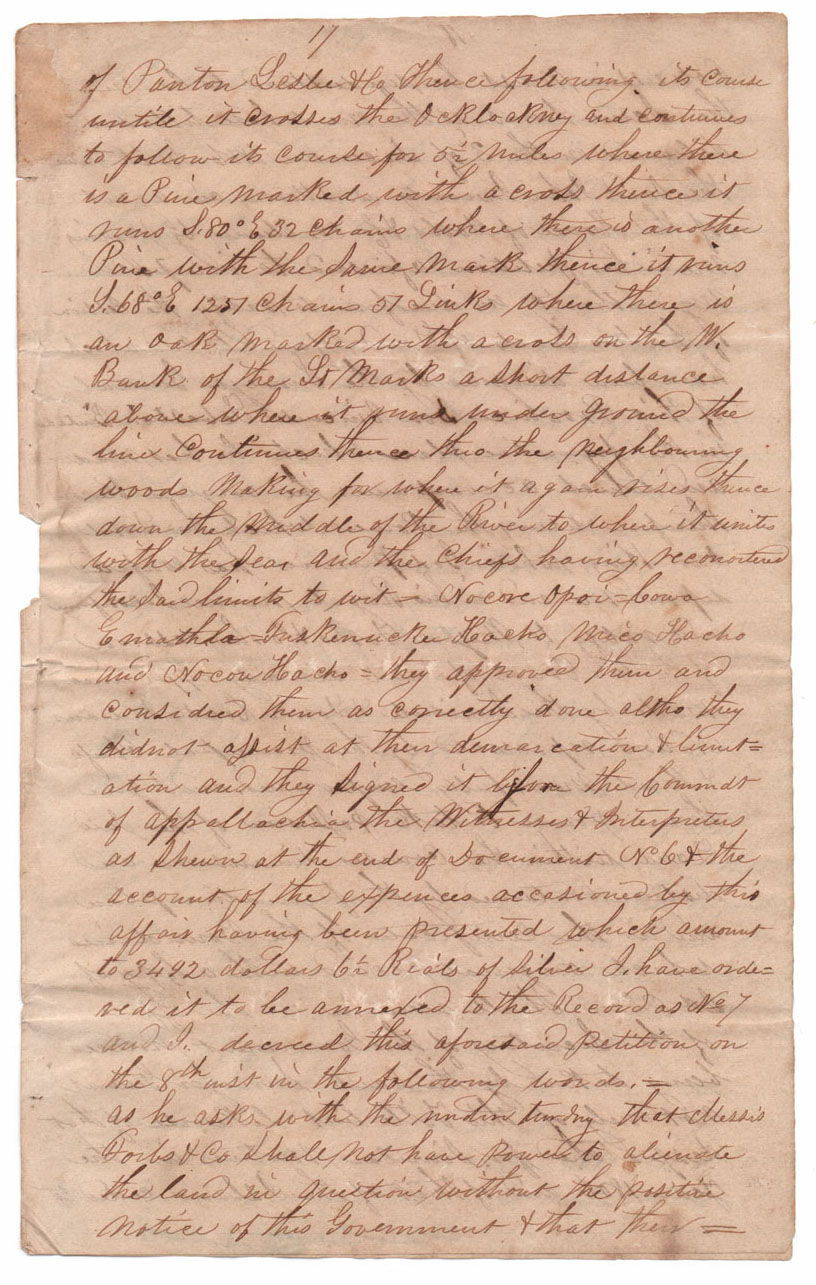 17
of Panton Leslie & Co thence following its course
untile it crosses the Ocklockney and continues
to follow its course for 5½ miles where there
is a Pine marked with a cross thence it
runs S.80°E 32 chains where there is another
Pine with the Same mark thence it runs
S.68°E 1251 chains 51 Links where there is
an oak marked with a cross on the W.
Bank of the St Marks a short distance
above where it runs under ground the
line continues thence thro the neighbouring
woods making for where it again rises thence
down the middle of the River to where it unites
with the Sea, and the chiefs having reconoitered
the said limits to wit = Nocore Opoi = Cowa
Emathla = Tuskenucke Hacho Mico Hacho
and Nocou Hacho = they approved them and
considred them as correctly done altho they
didnot assist at their demarcation & limit=
ation and they signed it before the Commdt
of appallachia the Witnesses & Interpreters
as shewn at the end of Document No 6 & the
account of the expences accasioned by this
affair having been presented which amount
to 3492 dollars 6½ Reals of silver I have orde=
red it to be annexed to the Record as No 7
and I. decreed this aforesaid Petition on
the 8th inst in the following words. =
as he asks with the that Messrs
Forbs & Co Shall not have power to alienate
the land in question without the positive
notice of this Government & that their =